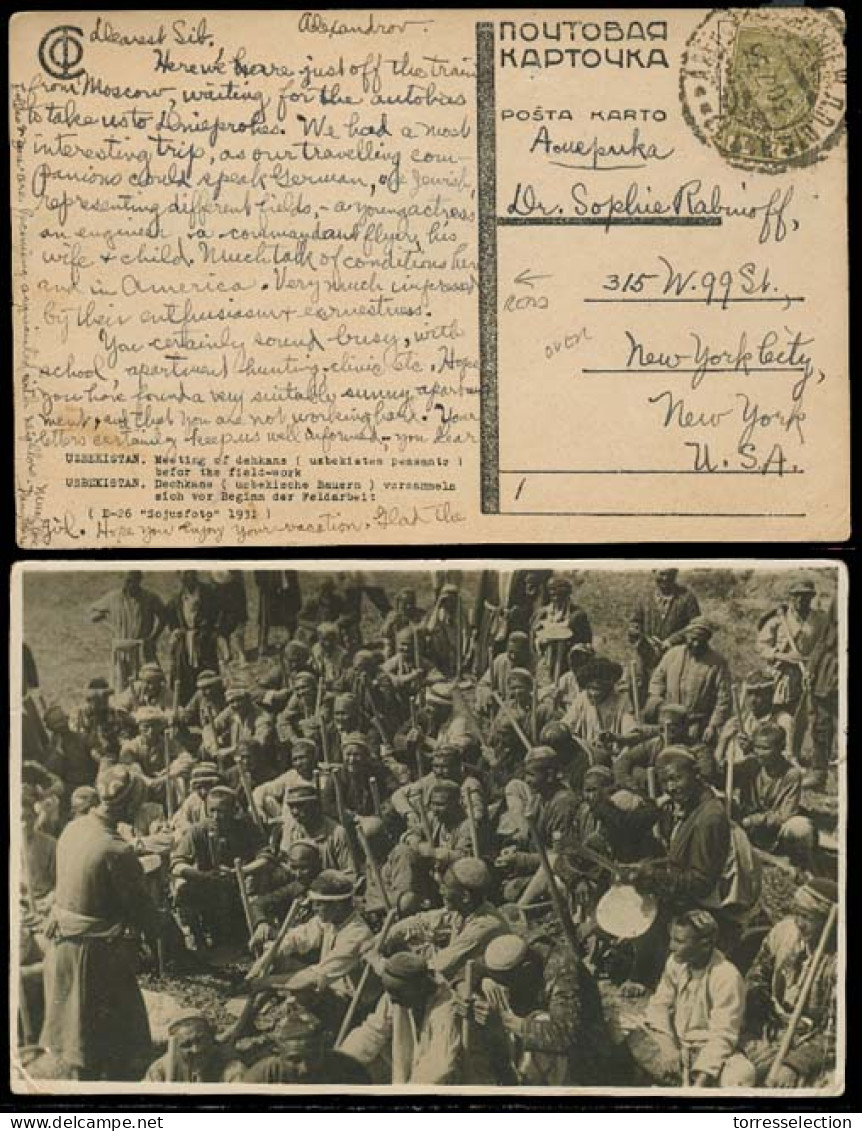 Dearest Sib, Alexandrov.
Here we are just off the train
from Moscow, waiting for the autobus
to take us to Dnieprohes. We had a most
interesting trip, as our travelling com-
panions could speak German, one Jewish,
representing different fields, - a young actress
an engineer + a commandant flyer, his
wife + child. Much talk of conditions here
and in America. Very much impressed
by their enthusiasm + earnestness.
You certainly sound busy, with
school, apartment hunting, clinic etc. Hope
you have found a very suitable sunny apart
ment, and that you are not working hard. Your
letters certainly keep us well informed, you dear
UZBEKISTAN. Meeting of dehkans ( uzbekisten peasants )
befor the field-work
USBEKISTAN. Dechkans ( usbekische Bauern ) versammeln
sich vor Beginn der Feldarbeit
( E-26 "Sojusfoto" 1931 )
girl. Hope you enjoy your vacation. Glad the
ПОЧТОВАЯ
КАРТОЧКА
POŜTA KARTO
Америка
Dr. Sophie Rabinoff,
315 W. 99 St.,
New York City,
New York
U.S.A.
←
over
torresselection